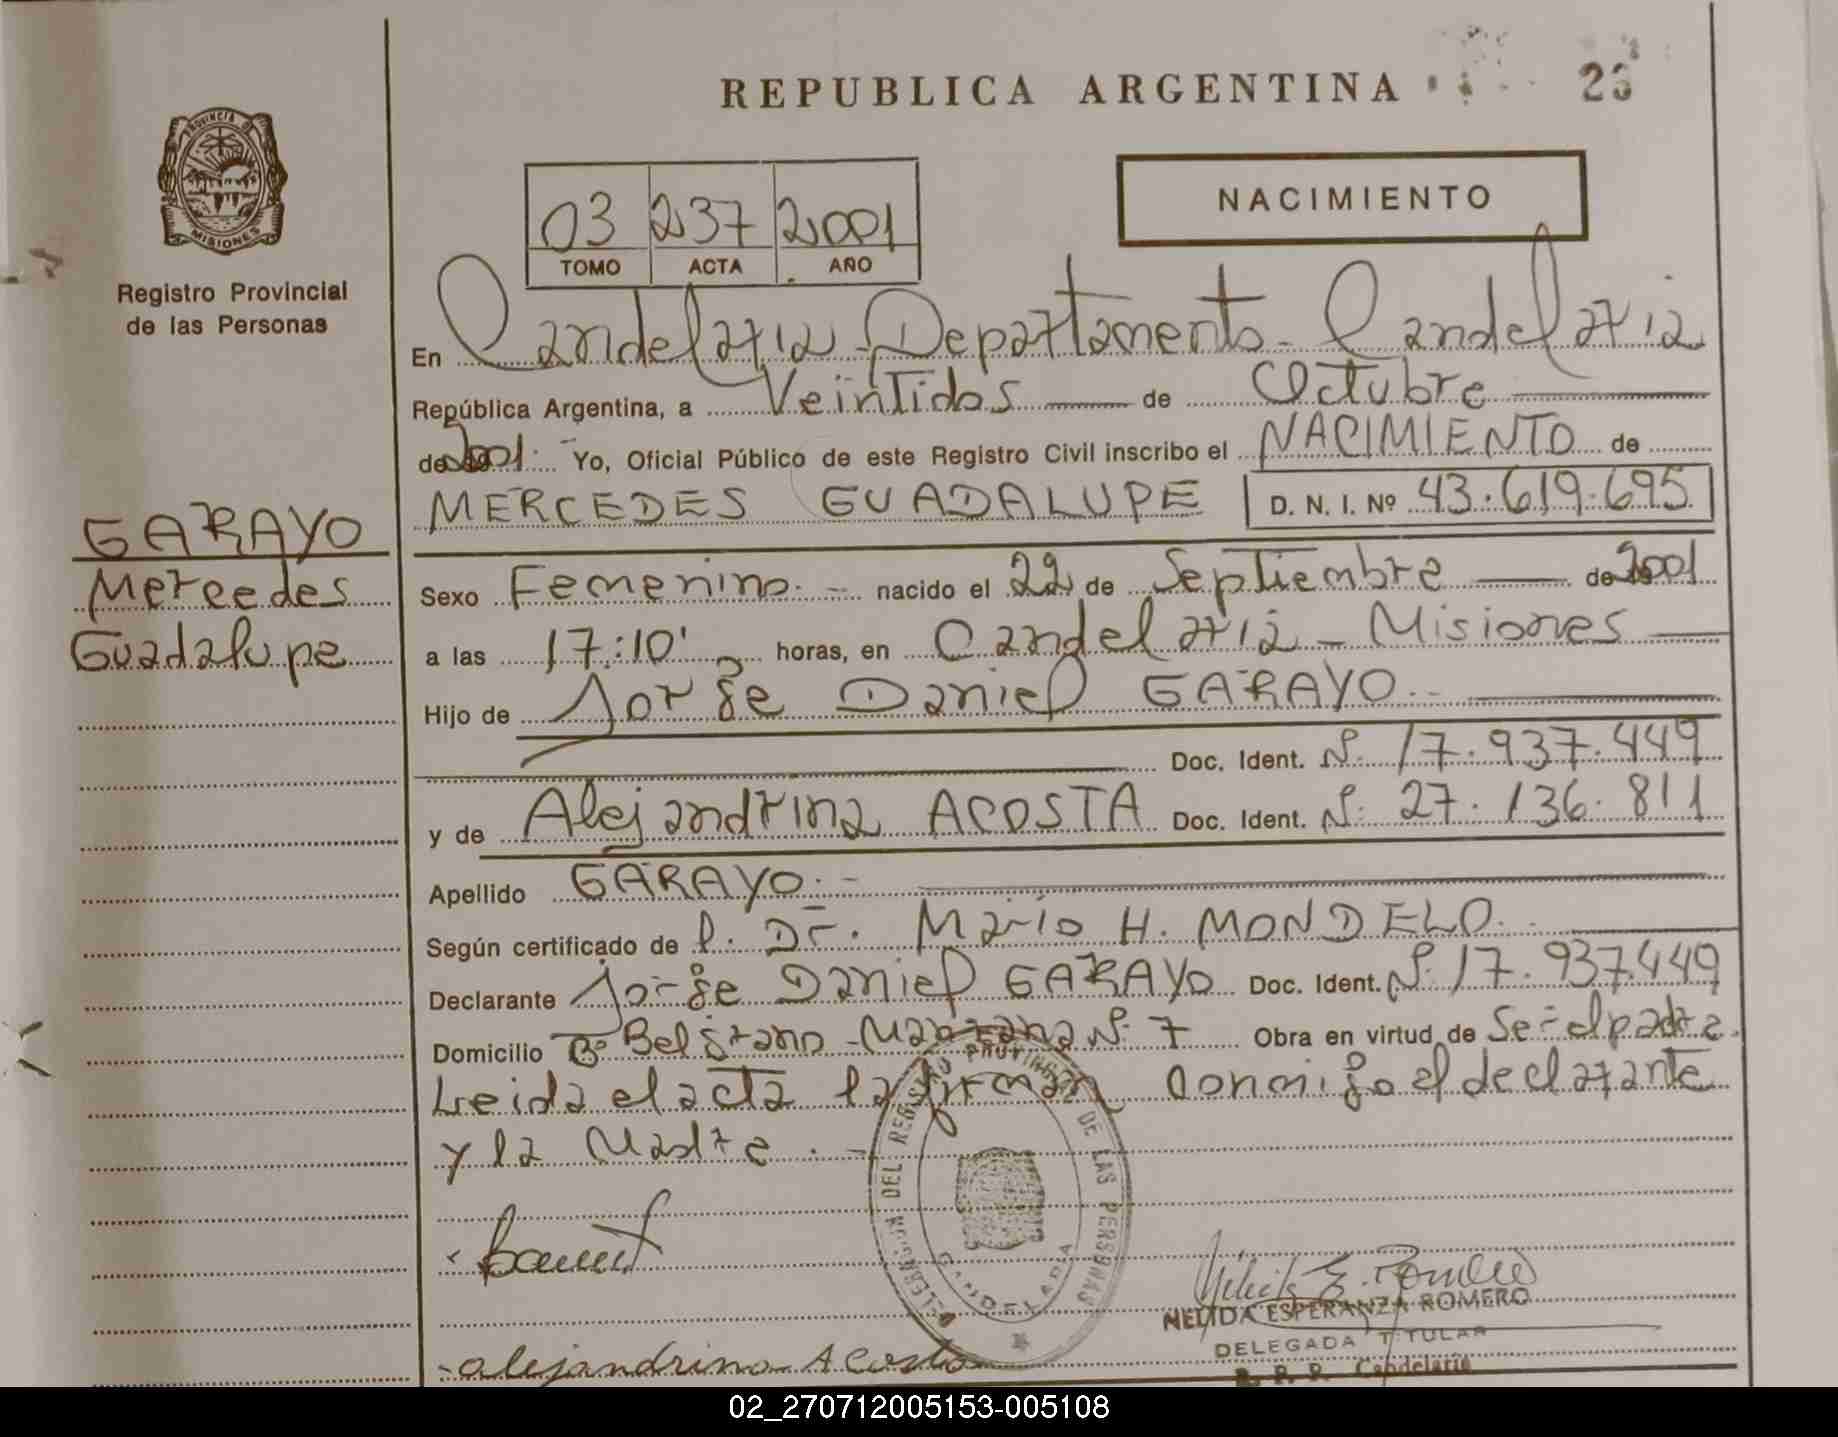 REPUBLICA ARGENTINA
PROVINCIA DE
MISIONES
Registro Provincial
de las Personas
NACIMIENTO
03 237 2001
TOMO ACTA AÑO
En Candelaria - Departamento - Candelaria
República Argentina, a Veintidos de Octubre
de 2001. Yo, Oficial Público de este Registro Civil inscribo el NACIMIENTO de
MERCEDES GUADALUPE D. N. I. Nº 43.619.695
GARAYO
Mercedes
Guadalupe
Sexo Femenino.- nacido el 22 de Septiembre de 2001
a las 17:10' horas, en Candelaria - Misiones
Hijo de Jorge Daniel GARAYO.-
Doc. Ident. Nº 17.937.449
y de Alejandrina ACOSTA Doc. Ident. Nº 27.136.811
Apellido GARAYO.-
Según certificado de l. Dr. Mario H. MONDELO.
Declarante Jorge Daniel GARAYO Doc. Ident. Nº 17.937.449
Domicilio Bº Belgrano - Manzana Nº 7 Obra en virtud de Ser el padre.
Leida el acta la firman conmigo el declarante
y la Madre.-
DEL REGISTRO PROVINCIAL DE LAS PERSONAS
CANDELARIA
NELIDA ESPERANZA ROMERO
DELEGADA TITULAR
R. P. P. Candelaria
alejandrina Acosta
02_270712005153-005108